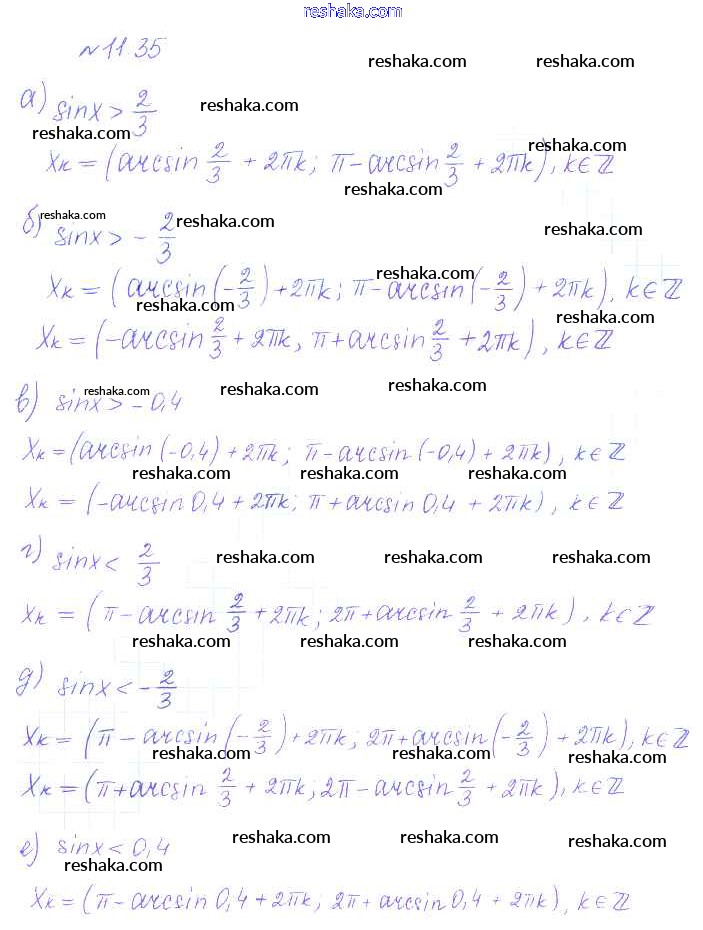 www.reshaka.com
№11.35
reshaka.com reshaka.com
а) sinx > 2/3 reshaka.com
reshaka.com reshaka.com
Xк = (arcsin 2/3 + 2πk; π - arcsin 2/3 + 2πk), k∈ℤ
reshaka.com
reshaka.com reshaka.com reshaka.com
б) sinx > - 2/3
reshaka.com
Xк = (arcsin(-2/3) + 2πk; π - arcsin(-2/3) + 2πk), k∈ℤ
reshaka.com reshaka.com
Xк = (-arcsin 2/3 + 2πk, π + arcsin 2/3 + 2πk), k∈ℤ
reshaka.com reshaka.com reshaka.com
в) sinx > -0,4
Xк = (arcsin(-0,4) + 2πk; π - arcsin(-0,4) + 2πk), k∈ℤ
reshaka.com reshaka.com reshaka.com
Xк = (-arcsin 0,4 + 2πk; π + arcsin 0,4 + 2πk), k∈ℤ
reshaka.com reshaka.com reshaka.com
г) sinx < 2/3
Xк = (π - arcsin 2/3 + 2πk; 2π + arcsin 2/3 + 2πk), k∈ℤ
reshaka.com reshaka.com reshaka.com
д) sinx < - 2/3
Xк = (π - arcsin(-2/3) + 2πk; 2π + arcsin(-2/3) + 2πk), k∈ℤ
reshaka.com reshaka.com reshaka.com
Xк = (π + arcsin 2/3 + 2πk; 2π - arcsin 2/3 + 2πk), k∈ℤ
reshaka.com reshaka.com reshaka.com
е) sinx < 0,4
reshaka.com
Xк = (π - arcsin 0,4 + 2πk; 2π + arcsin 0,4 + 2πk), k∈ℤ